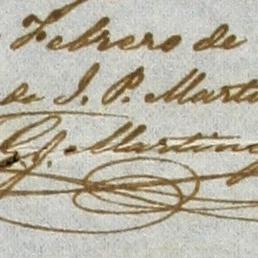 Febrero de
de J. P. Mart
G. J. Martin